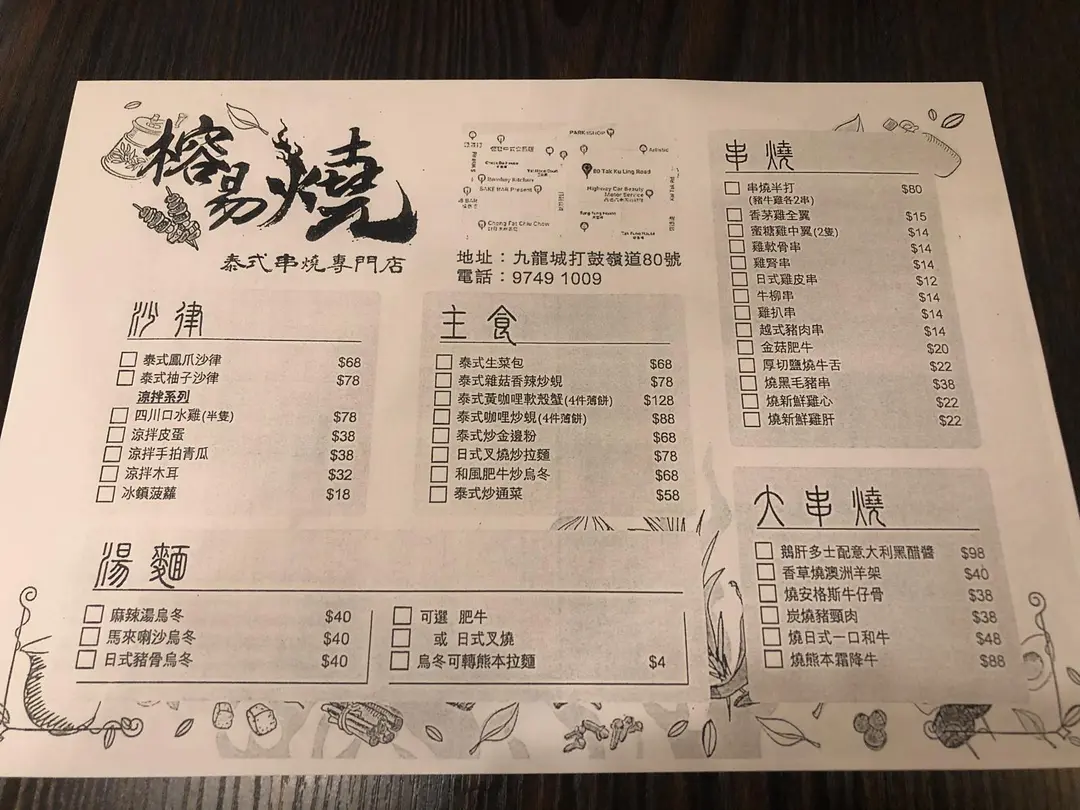 榕易燒
泰式串燒專門店
PARKnSHOP
80 Tak Ku Ling Road
Bombay Kitchen
SAKE BAR Present
Highway Car Beauty
Motor Service
Chong Fat Chiu Chow
地址：九龍城打鼓嶺道80號
電話：9749 1009
沙律
泰式鳳爪沙律 $68
泰式柚子沙律 $78
涼拌系列
四川口水雞(半隻) $78
涼拌皮蛋 $38
涼拌手拍青瓜 $38
涼拌木耳 $32
冰鎮菠蘿 $18
主食
泰式生菜包 $68
泰式雜菇香辣炒蜆 $78
泰式黃咖哩軟殼蟹(4件薄餅) $128
泰式咖哩炒蜆(4件薄餅) $88
泰式炒金邊粉 $68
日式叉燒炒拉麵 $78
和風肥牛炒烏冬 $68
泰式炒通菜 $58
湯麵
麻辣湯烏冬 $40
馬來喇沙烏冬 $40
日式豬骨烏冬 $40
可選 肥牛
或 日式叉燒
烏冬可轉熊本拉麵 $4
串燒
串燒半打 $80
(豬牛雞各2串)
香茅雞全翼 $15
蜜糖雞中翼(2隻) $14
雞軟骨串 $14
雞腎串 $14
日式雞皮串 $12
牛柳串 $14
雞扒串 $14
越式豬肉串 $14
金菇肥牛 $20
厚切鹽燒牛舌 $22
燒黑毛豬串 $38
燒新鮮雞心 $22
燒新鮮雞肝 $22
大串燒
鵝肝多士配意大利黑醋醬 $98
香草燒澳洲羊架 $40
燒安格斯牛仔骨 $38
炭燒豬頸肉 $38
燒日式一口和牛 $48
燒熊本霜降牛 $88